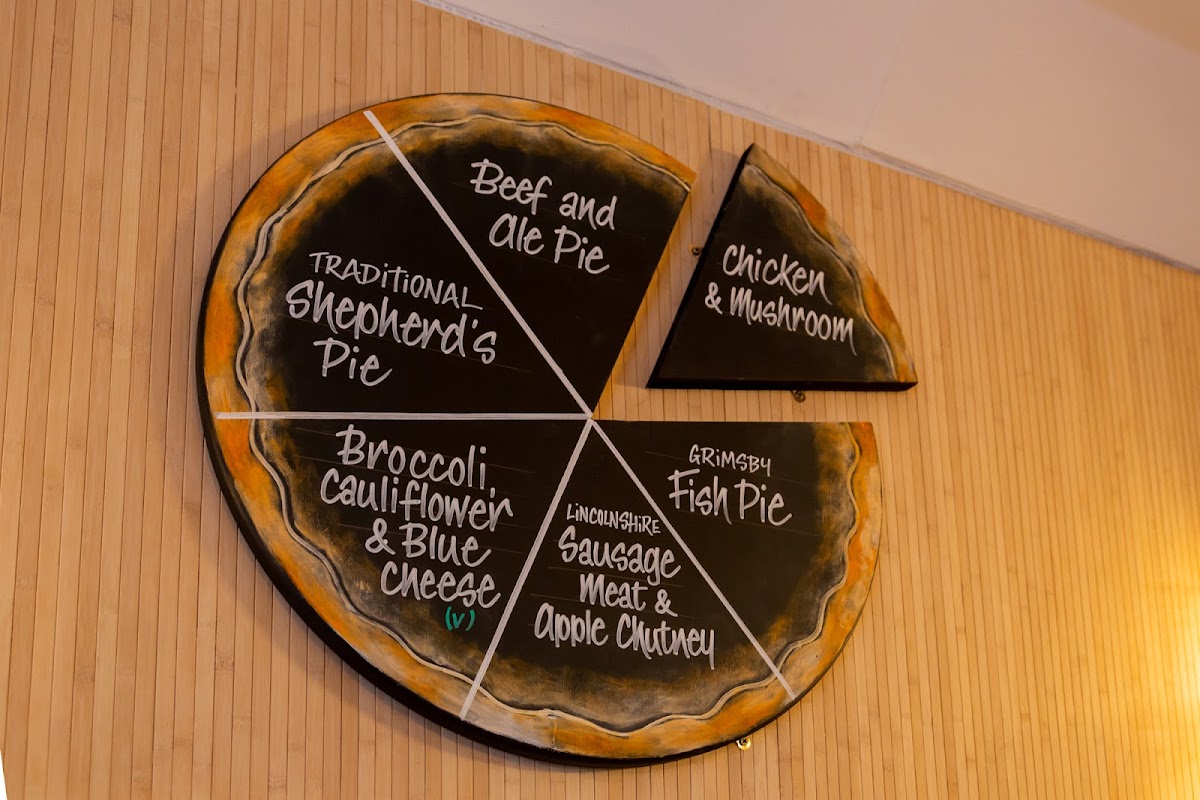 Beef and
Ale Pie
Chicken
& Mushroom
TRADiTiONAL
Shepherd's
Pie
GRiMSBY
Fish Pie
Broccoli,
Cauliflower
& Blue
Cheese
(v)
LiNCOLNSHiRE
Sausage
Meat &
Apple Chutney